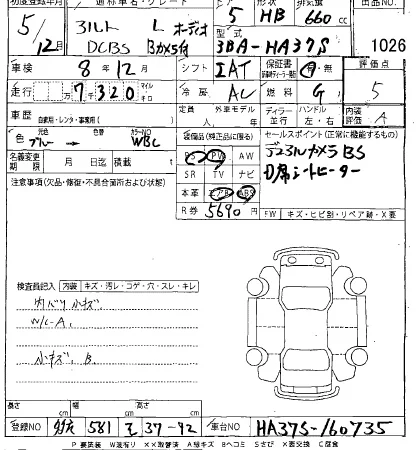 初度登録年月 通称車名・グレード ドア 形状 排気量 出品NO.
5/12月 アルト L オーディオ 5 HB 660cc
DCBS Bカメラ付 型式 3BA-HA37S 1026
車検 8年12月 シフト IAT 保証書 評価点
走行 7千320 マイル キロ 冷房 AC 燃料 G 5
車歴 自家用・レンタ・事業用( ) 定員 人 外車モデル 年 ディーラー 並行 ハンドル 左・右 内装 A
色 元色 ブルー 色替 カラーNO WBC 装備品(純正品に限る) セールスポイント(正常に機能するもの)
名義変更期限 月 日迄 積載 t PS PW AW デュアルカメラBS
SR TV ナビ D席シートヒーター
注意事項(欠品・修復・不具合箇所および状態) 本革 エアB ABS
R券 5690円 FW キズ・ヒビ割・リペア跡・X要
検査員記入 内装 キズ・汚レ・コゲ・穴・スレ・キレ
内バリ小キズ
W/C-A
小キズ、B
長さ cm 幅 cm 高さ cm
登録NO 581 37-92 車台NO HA37S-160735
P要塗装 W波有り XX取替済 Aキズ Bヘコミ Sさび X要交換 C腐食